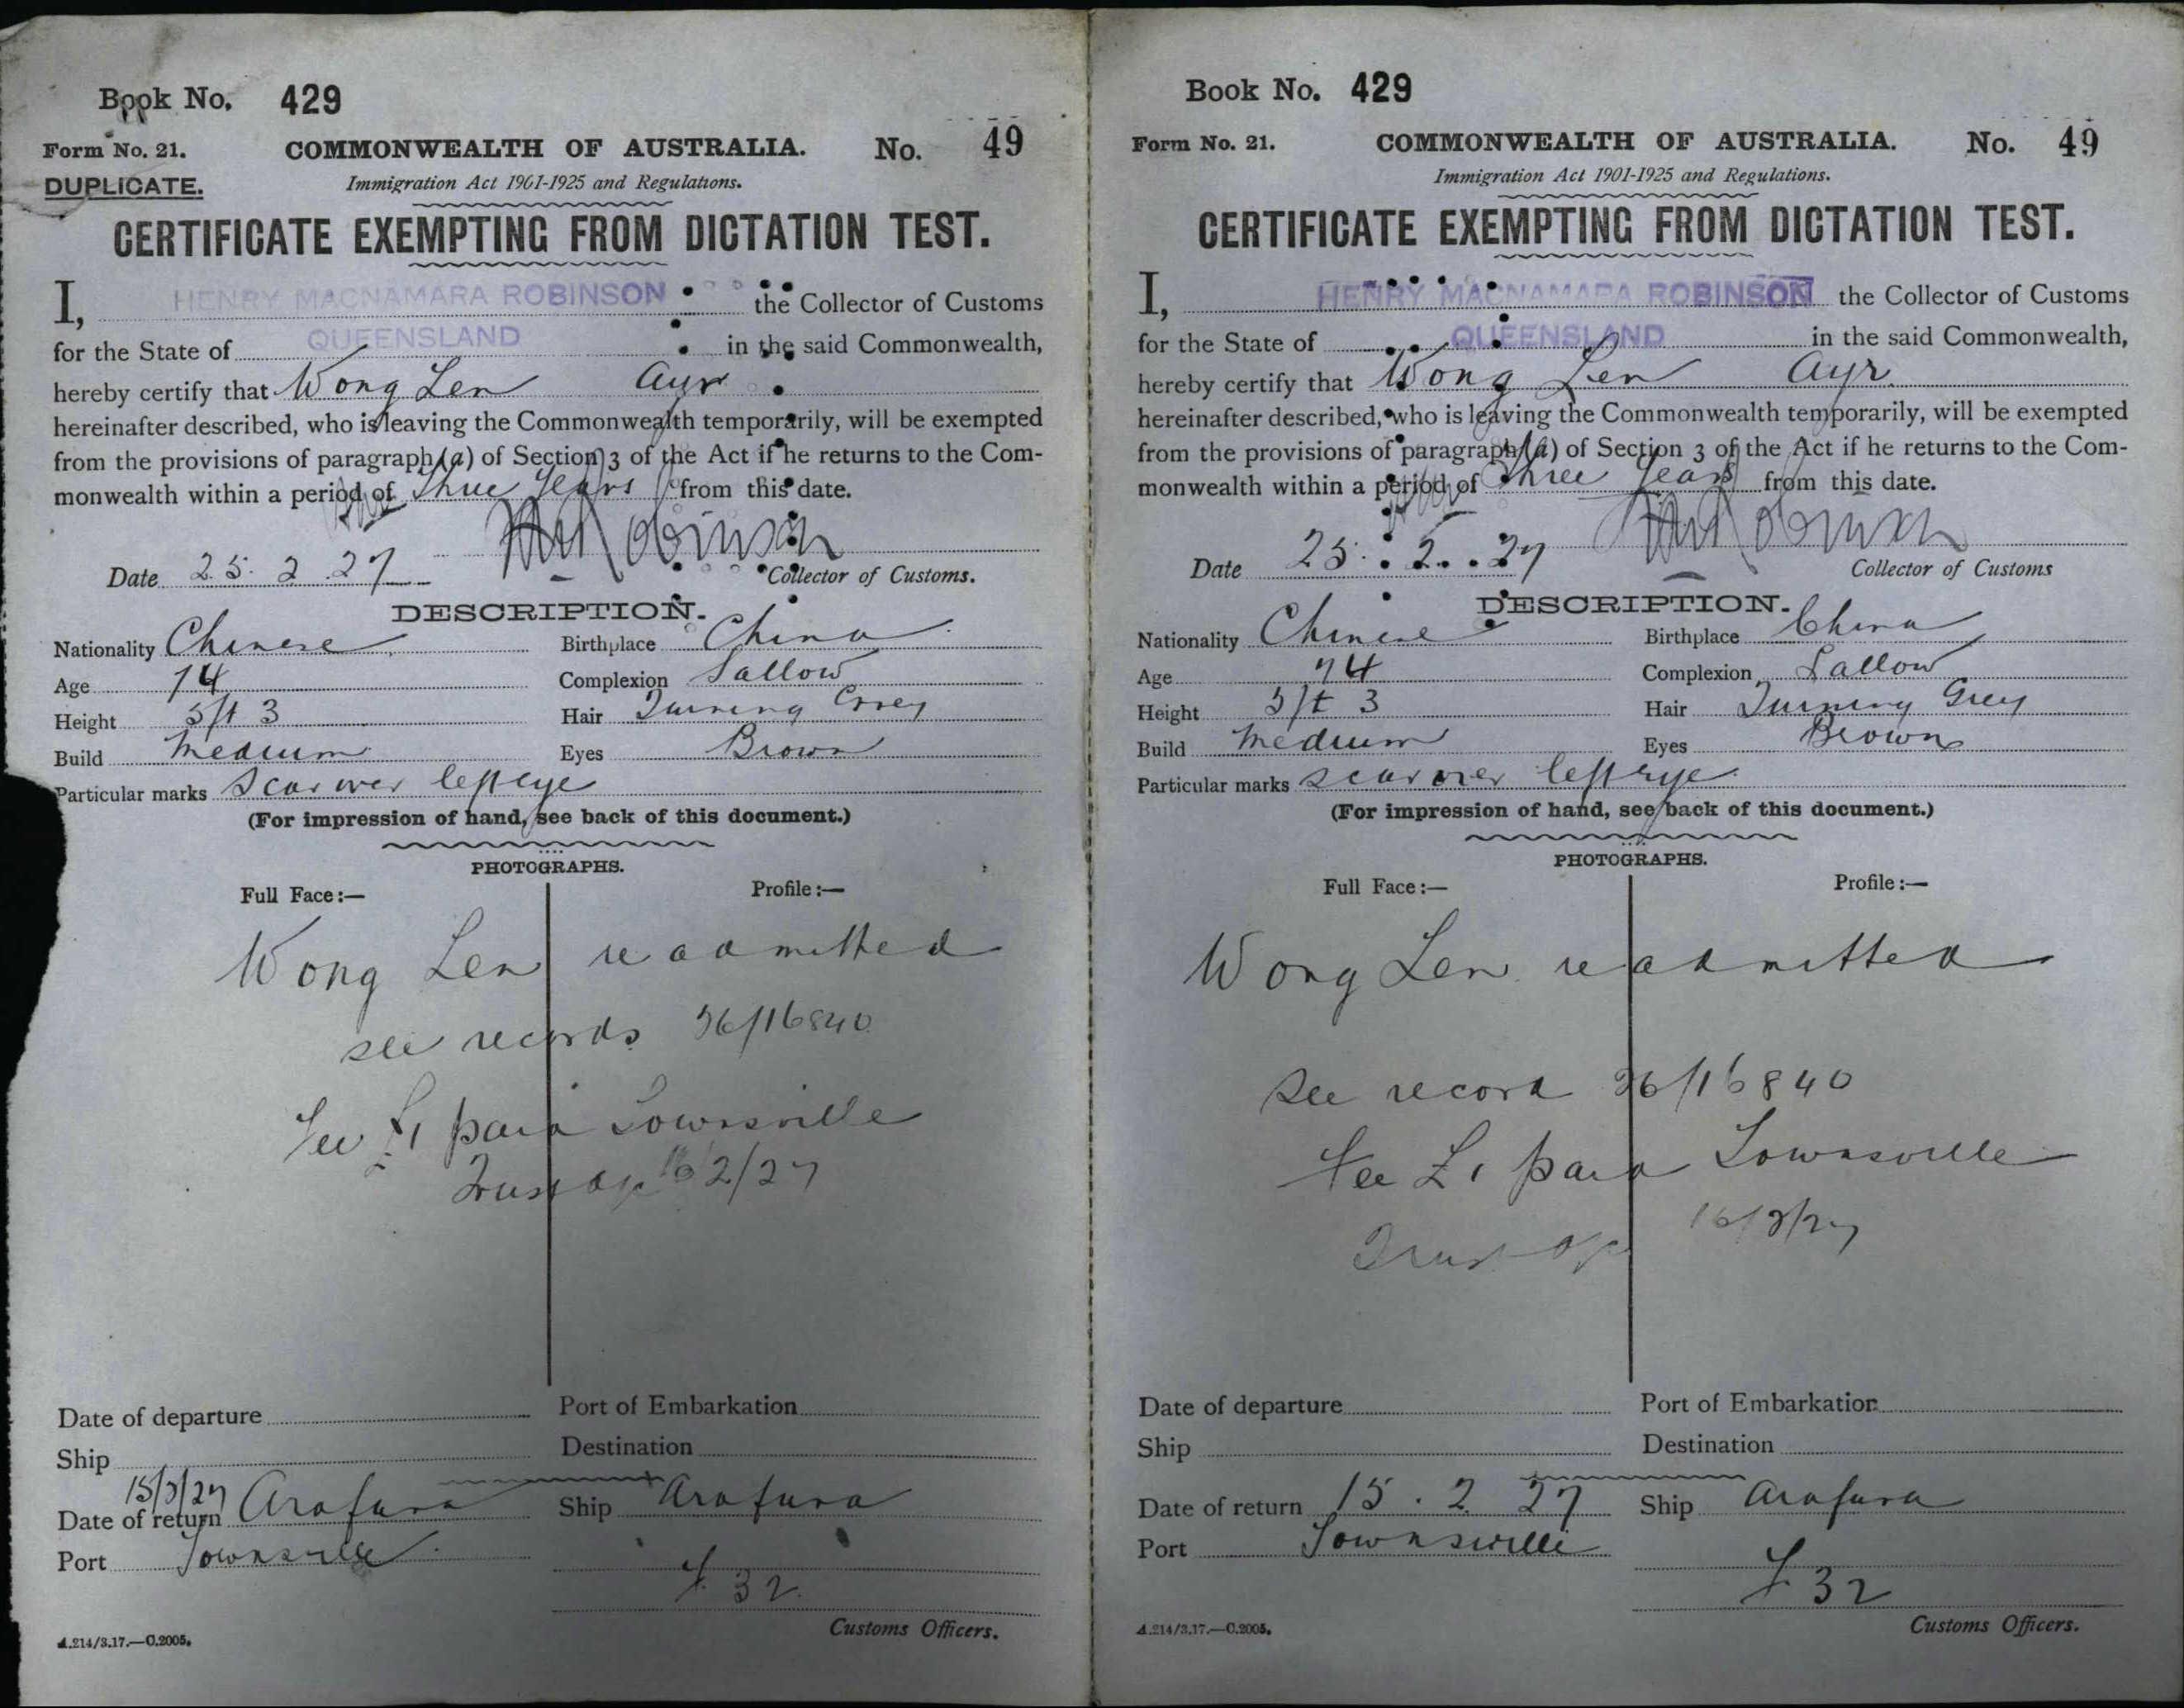 Book No. 429
Form No. 21.
COMMONWEALTH OF AUSTRALIA.
No. 49
DUPLICATE.
Immigration Act 1901-1925 and Regulations.
CERTIFICATE EXEMPTING FROM DICTATION TEST.
I, HENRY MACNAMARA ROBINSON the Collector of Customs
for the State of QUEENSLAND in the said Commonwealth,
hereby certify that Wong Len Ayr
hereinafter described, who is leaving the Commonwealth temporarily, will be exempted
from the provisions of paragraph (a) of Section 3 of the Act if he returns to the Com-
monwealth within a period of three years from this date.
HM Robinson
Date 25. 2. 27
Collector of Customs.
DESCRIPTION.
Nationality Chinese Birthplace China
Age 74 Complexion Sallow
Height 5ft 3 Hair Turning Grey
Build Medium Eyes Brown
Particular marks Scar over left eye
(For impression of hand, see back of this document.)
PHOTOGRAPHS.
Full Face:— Profile:—
Wong Len readmitted
see records 26/16840
Fee £1 paid Townsville
Trust 16/2/27
Date of departure Port of Embarkation
Ship Destination
15/2/27
Date of return Arafura Ship Arafura
Port Townsville
F 32
Customs Officers.
A.214/3.17.—C.2005.
Book No. 429
Form No. 21.
COMMONWEALTH OF AUSTRALIA.
No. 49
Immigration Act 1901-1925 and Regulations.
CERTIFICATE EXEMPTING FROM DICTATION TEST.
I, HENRY MACNAMARA ROBINSON the Collector of Customs
for the State of QUEENSLAND in the said Commonwealth,
hereby certify that Wong Len Ayr
hereinafter described, who is leaving the Commonwealth temporarily, will be exempted
from the provisions of paragraph (a) of Section 3 of the Act if he returns to the Com-
monwealth within a period of three years from this date.
HM Robinson
Date 25. 2. 27
Collector of Customs
DESCRIPTION.
Nationality Chinese Birthplace China
Age 74 Complexion Sallow
Height 5ft 3 Hair Turning Grey
Build Medium Eyes Brown
Particular marks Scar over left eye
(For impression of hand, see back of this document.)
PHOTOGRAPHS.
Full Face:— Profile:—
Wong Len readmitted
See record 26/16840
Fee £1 paid Townsville
Trust 16/2/27
Date of departure Port of Embarkation
Ship Destination
Date of return 15. 2 27 Ship Arafura
Port Townsville
F 32
Customs Officers.
A.214/3.17.—C.2005.